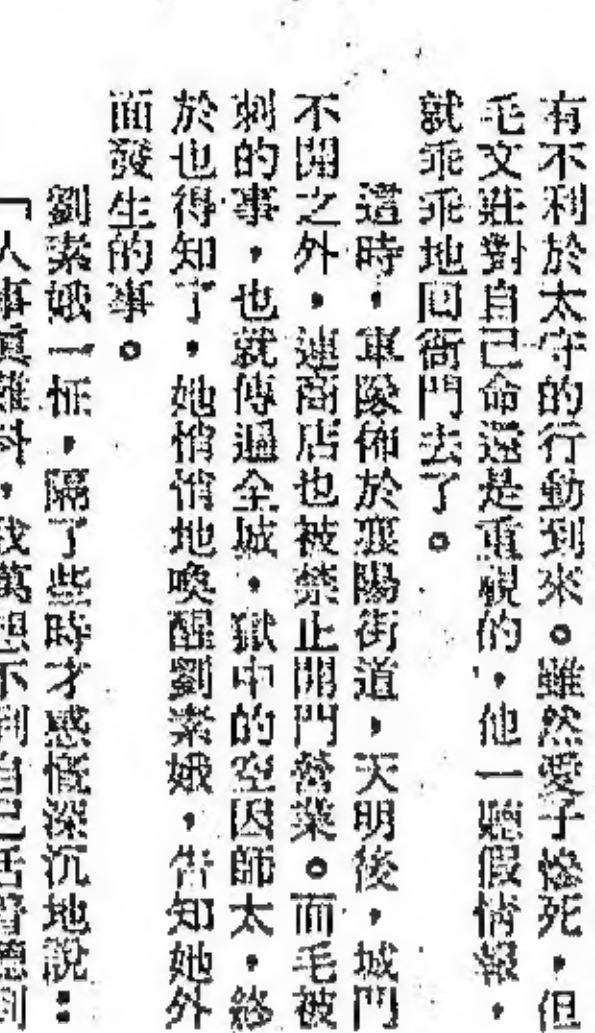 有不利於太守的行動到來。雖然愛子慘死，但
毛文莊對自己命還是重視的，他一聽假情報，
就乖乖地囘衙門去了。
這時，軍隊佈於襄陽街道，天明後，城門
不開之外，連商店也被禁止開門營業。而毛被
刺的事，也就傳遍全城，獄中的空因師太，終
於也得知了，她悄悄地喚醒劉素娥，告知她外
面發生的事。
劉素娥一怔，隔了些時才感慨深沉地說：
「人事眞難料，我萬想不到自己活着聽到